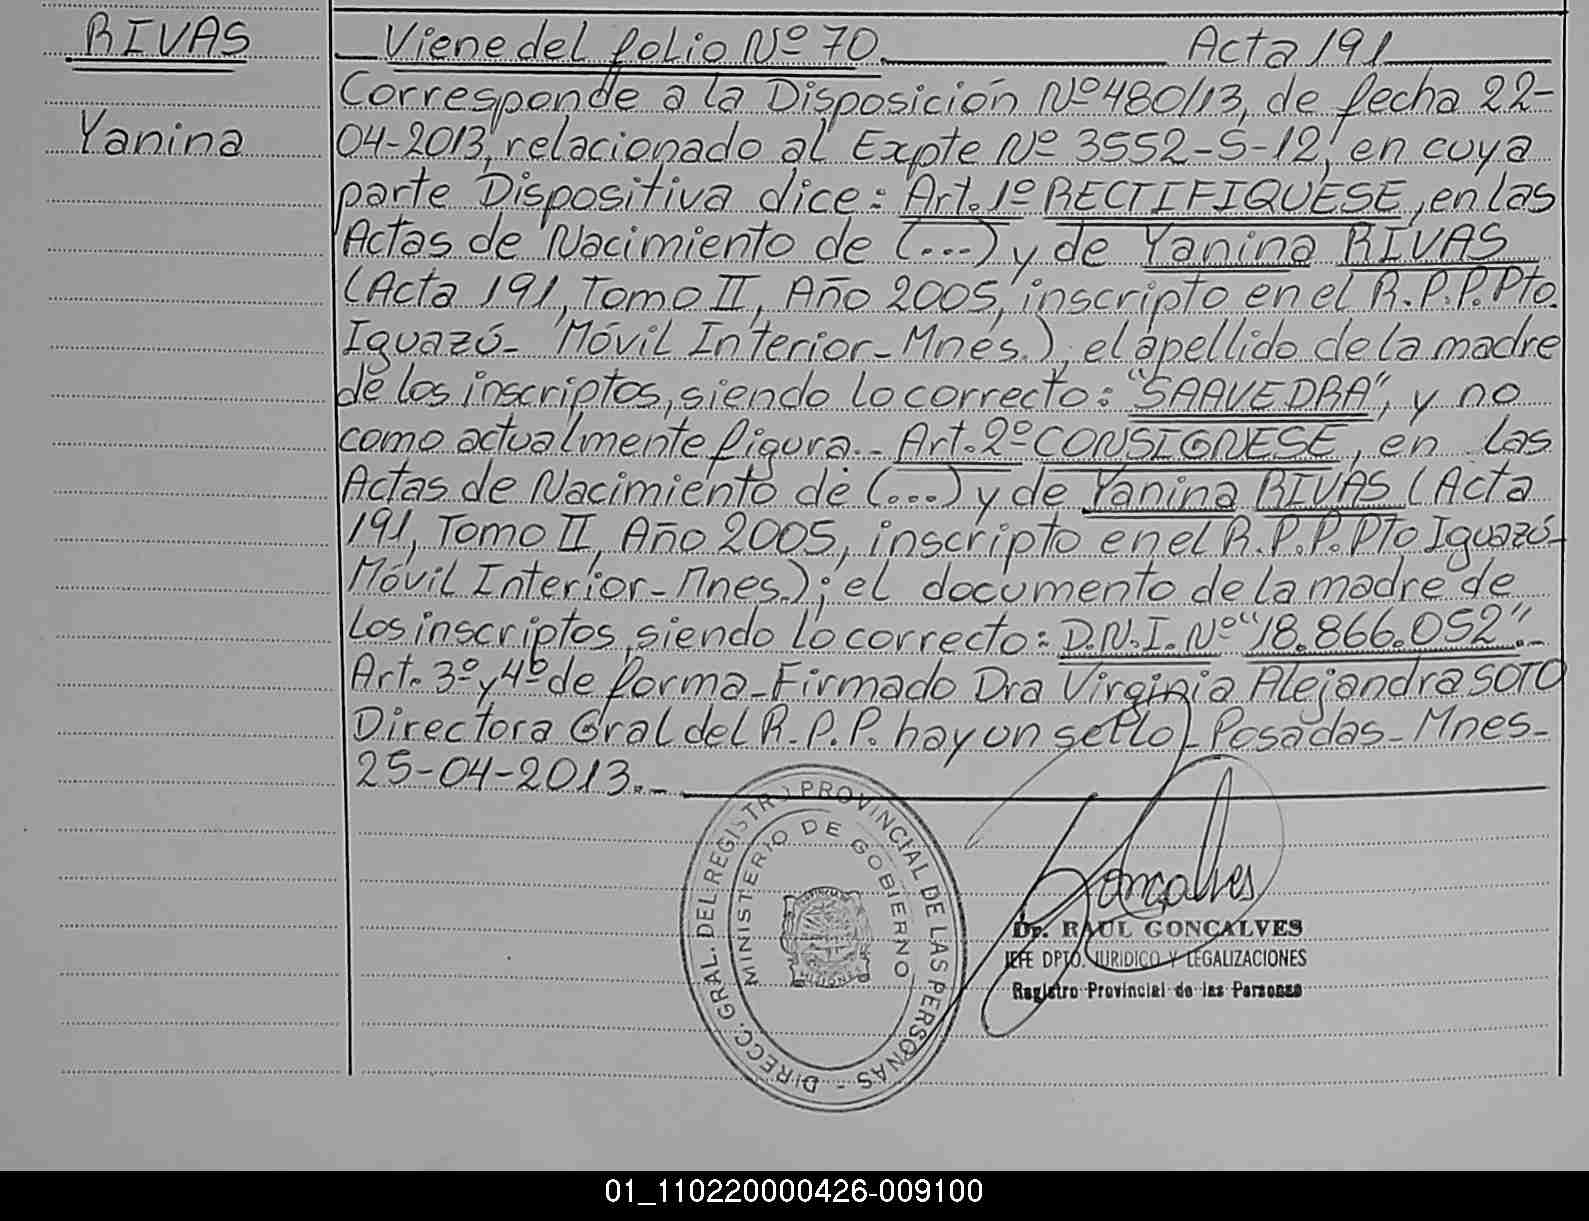 RIVAS
Yanina
Viene del folio Nº 70. Acta 191
Corresponde a la Disposición Nº 480/13, de fecha 22-
04-2013, relacionado al Expte Nº 3552-S-12, en cuya
parte Dispositiva dice: Art. 1º RECTIFIQUESE, en las
Actas de Nacimiento de (...) y de Yanina RIVAS
(Acta 191, Tomo II, Año 2005, inscripto en el R.P.P. Pto.
Iguazú- Móvil Interior-Mnes.), el apellido de la madre
de los inscriptos, siendo lo correcto: "SAAVEDRA", y no
como actualmente figura.- Art. 2º CONSIGNESE, en las
Actas de Nacimiento de (...) y de Yanina RIVAS (Acta
191, Tomo II, Año 2005, inscripto en el R.P.P. Pto Iguazú-
Móvil Interior-Mnes.); el documento de la madre de
los inscriptos, siendo lo correcto: D.N.I. Nº "18.866.052".-
Art. 3º y 4º de forma-Firmado Dra Virginia Alejandra SOTO
Directora Gral del R.P.P. hay un sello- Posadas-Mnes-
25-04-2013.-
DIRECC. GRAL. DEL REGISTRO PROVINCIAL DE LAS PERSONAS -
MINISTERIO DE GOBIERNO
MISIONES
Goncalves
Dr. RAUL GONÇALVES
JEFE DPTO. JURIDICO Y LEGALIZACIONES
Registro Provincial de las Personas
01_110220000426-009100